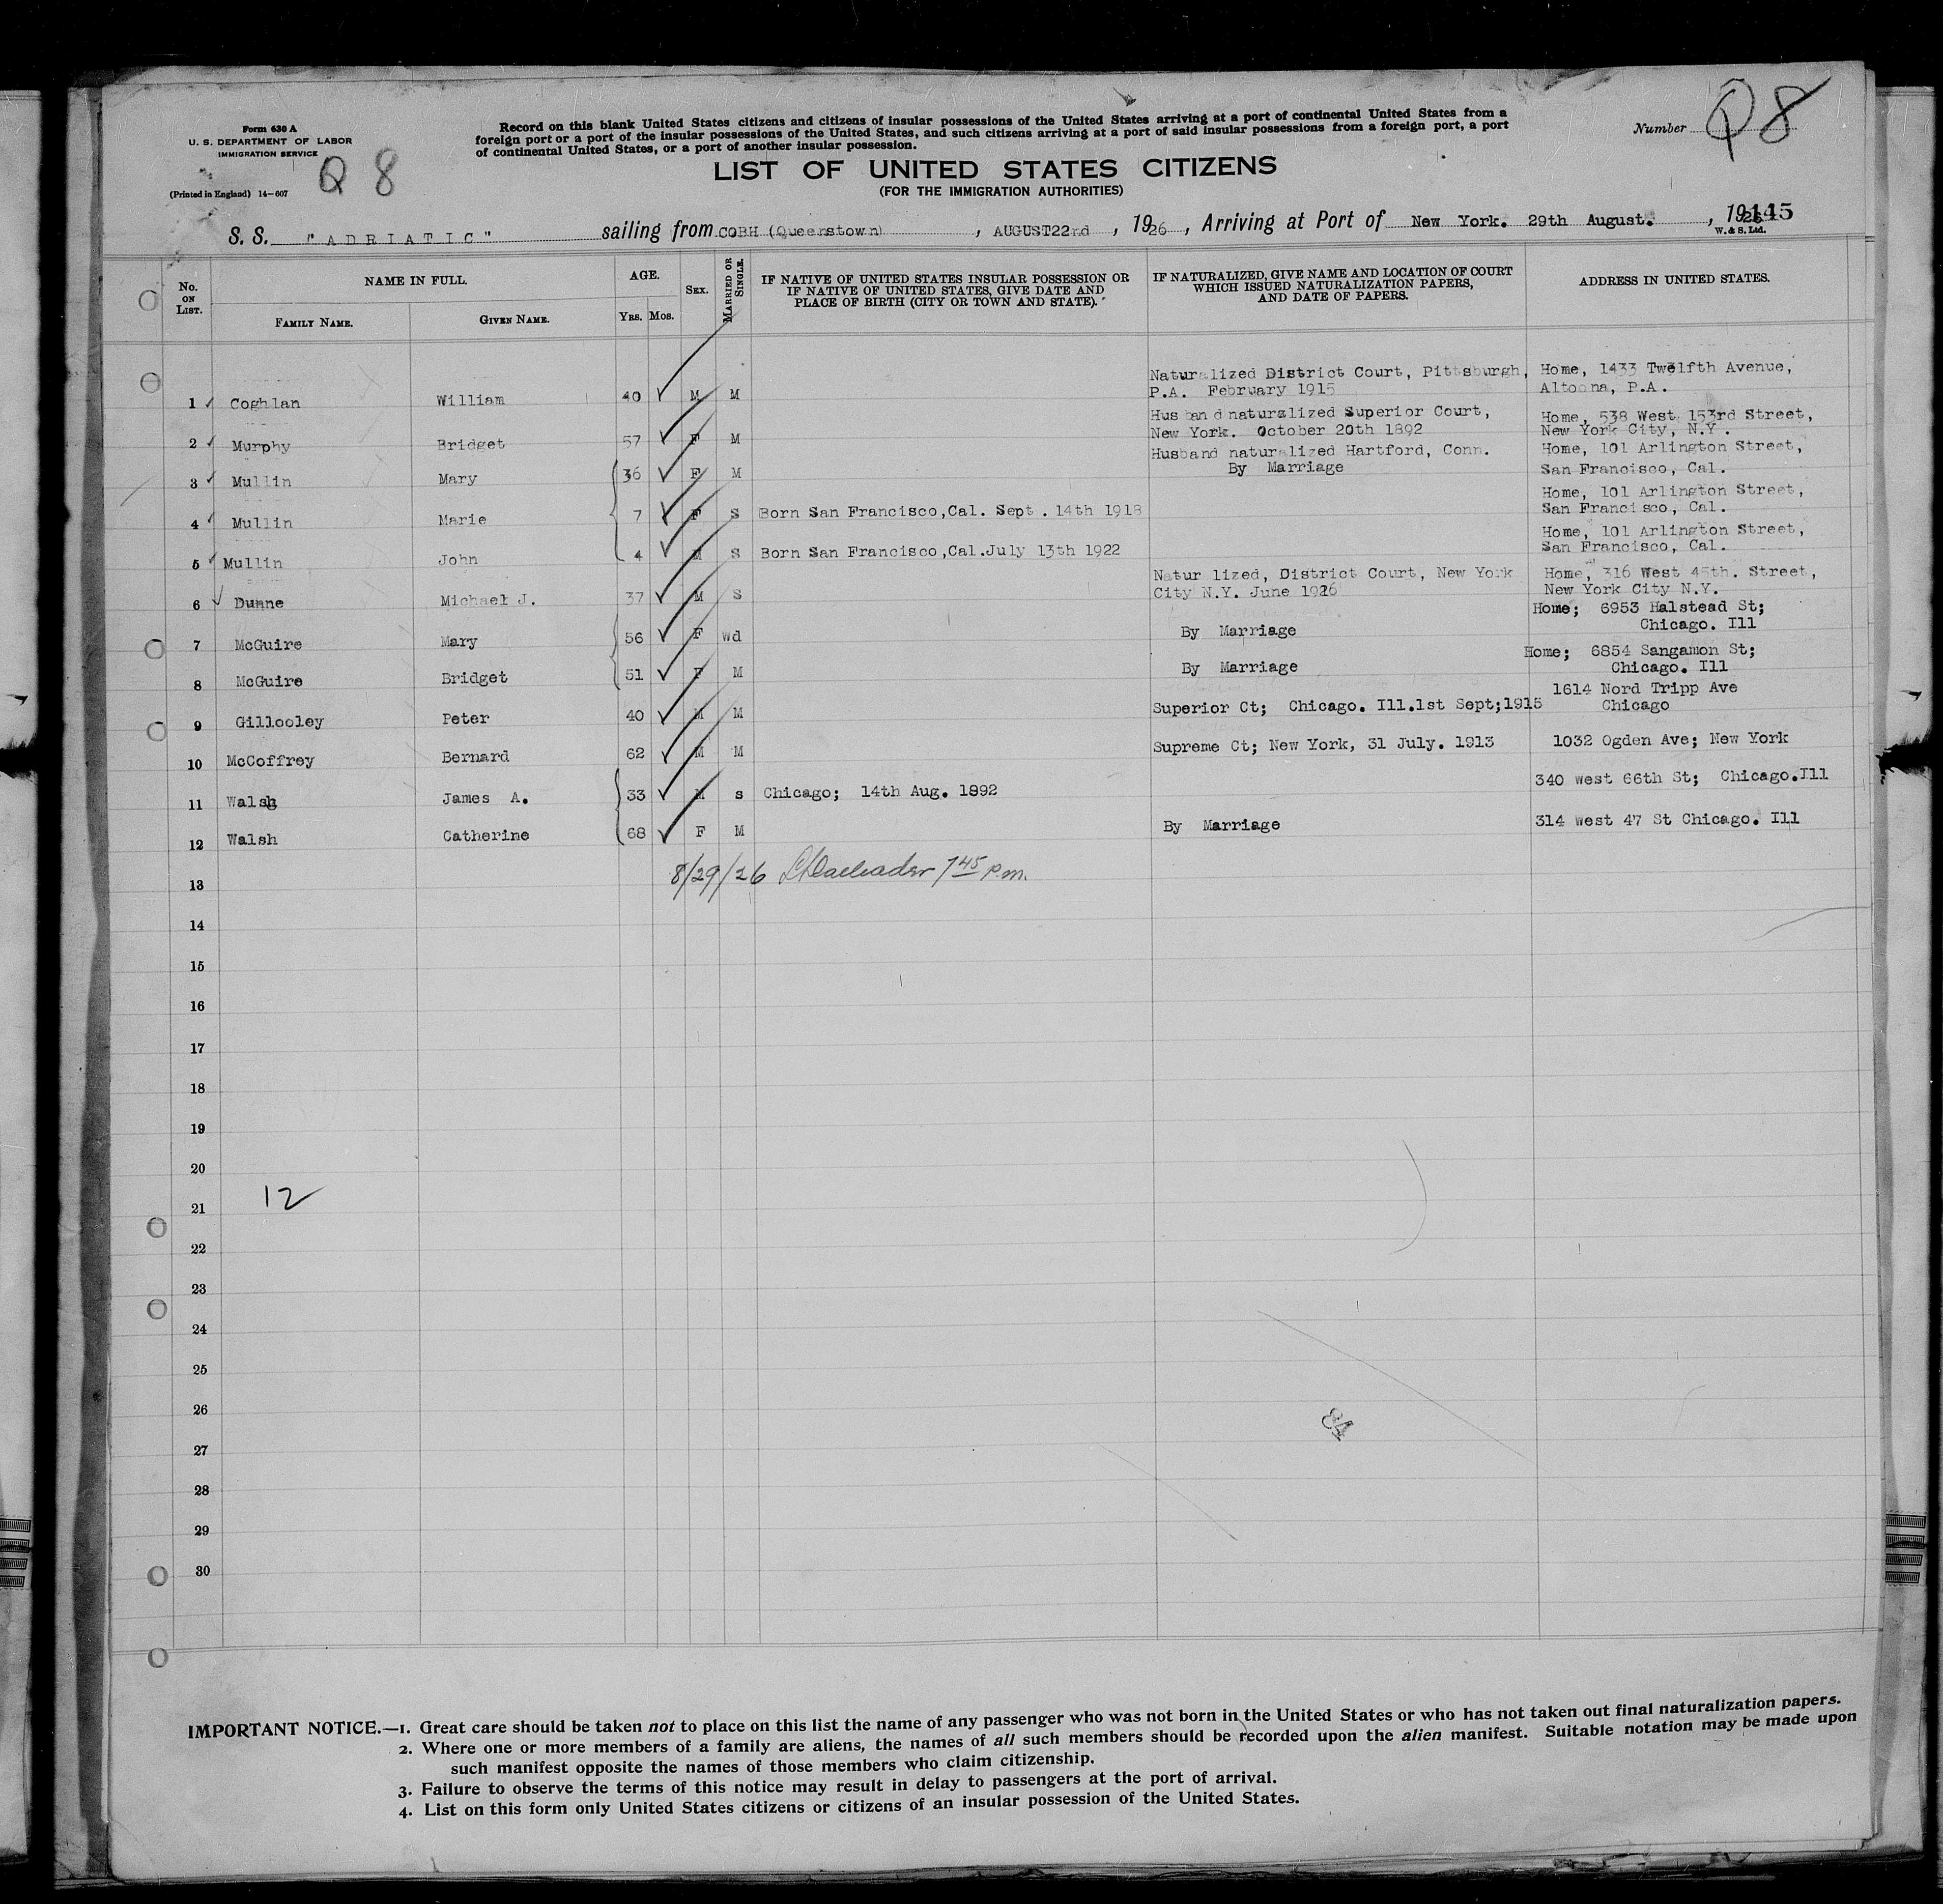 Form 630 A
U. S. DEPARTMENT OF LABOR
IMMIGRATION SERVICE
(Printed in England) 14—607
Q 8
Record on this blank United States citizens and citizens of insular possessions of the United States arriving at a port of continental United States from a
foreign port or a port of the insular possessions of the United States, and such citizens arriving at a port of said insular possessions from a foreign port, a port
of continental United States, or a port of another insular possession.
Number Q8
LIST OF UNITED STATES CITIZENS
(FOR THE IMMIGRATION AUTHORITIES)
S. S. "ADRIATIC" sailing from COBH (Queenstown), AUGUST 22nd, 1926, Arriving at Port of New York. 29th August., 1926
145
W. & S. Ltd.
No. ON LIST.
NAME IN FULL.
FAMILY NAME. GIVEN NAME.
AGE.
YRS. MOS.
SEX.
MARRIED OR SINGLE.
IF NATIVE OF UNITED STATES INSULAR POSSESSION OR
IF NATIVE OF UNITED STATES, GIVE DATE AND
PLACE OF BIRTH (CITY OR TOWN AND STATE).
IF NATURALIZED, GIVE NAME AND LOCATION OF COURT
WHICH ISSUED NATURALIZATION PAPERS,
AND DATE OF PAPERS.
ADDRESS IN UNITED STATES.
1 Coghlan William 40 M M Naturalized District Court, Pittsburgh, Home, 1433 Twelfth Avenue,
P.A. February 1915 Altoona, P.A.
2 Murphy Bridget 57 F M Husband naturalized Superior Court, Home, 538 West 153rd Street,
New York. October 20th 1892 New York City, N.Y.
3 Mullin Mary 36 F M Husband naturalized Hartford, Conn. Home, 101 Arlington Street,
By Marriage San Francisco, Cal.
4 Mullin Marie 7 F S Born San Francisco,Cal. Sept. 14th 1918 Home, 101 Arlington Street,
San Francisco, Cal.
5 Mullin John 4 M S Born San Francisco,Cal.July 13th 1922 Home, 101 Arlington Street,
San Francisco, Cal.
6 Dunne Michael J. 37 M S Natur lized, District Court, New York Home, 316 West 45th. Street,
City N.Y. June 1926 New York City N.Y.
7 McGuire Mary 56 F Wd By Marriage Home; 6953 Halstead St;
Chicago. Ill
8 McGuire Bridget 51 F M By Marriage Home; 6854 Sangamon St;
Chicago. Ill
9 Gillooley Peter 40 M M Superior Ct; Chicago. Ill.1st Sept;1915 1614 Nord Tripp Ave
Chicago
10 McCoffrey Bernard 62 M M Supreme Ct; New York, 31 July. 1913 1032 Ogden Ave; New York
11 Walsh James A. 33 M s Chicago; 14th Aug. 1892 340 west 66th St; Chicago.Ill
12 Walsh Catherine 68 F M By Marriage 314 west 47 St Chicago. Ill
13 8/29/26 7 45 P.m.
14
15
16
17
18
19
20
12
21
22
23
24
25
26
84
27
28
29
30
IMPORTANT NOTICE.—1. Great care should be taken not to place on this list the name of any passenger who was not born in the United States or who has not taken out final naturalization papers.
2. Where one or more members of a family are aliens, the names of all such members should be recorded upon the alien manifest. Suitable notation may be made upon
such manifest opposite the names of those members who claim citizenship.
3. Failure to observe the terms of this notice may result in delay to passengers at the port of arrival.
4. List on this form only United States citizens or citizens of an insular possession of the United States.